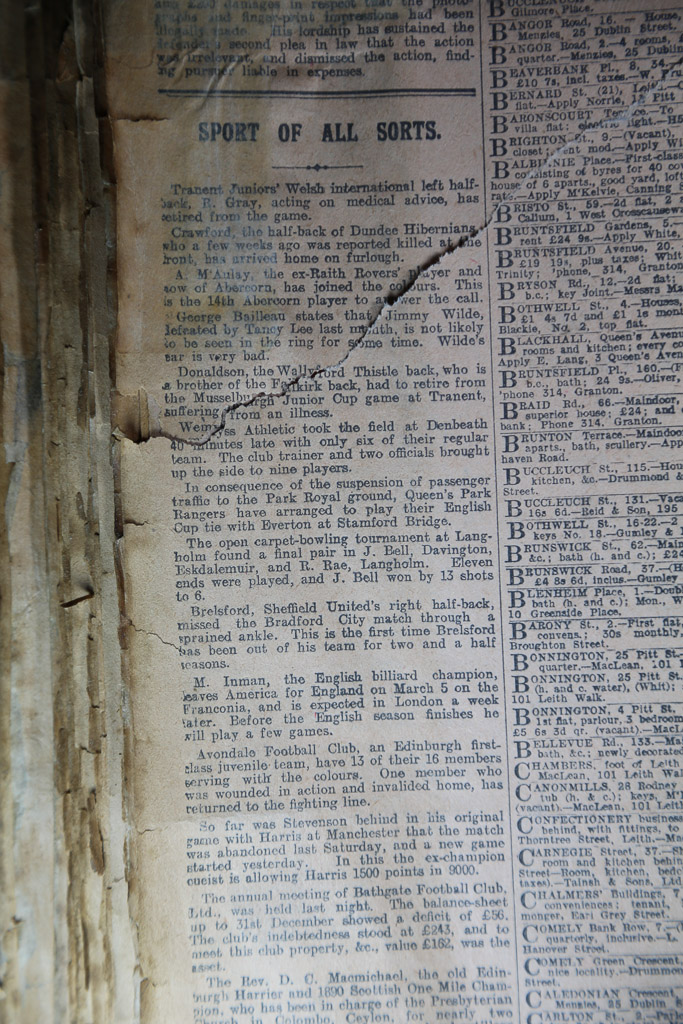 and 2,250 damages in respect that the photo-
graphs and finger-print impressions had been
illegally made. His lordship has sustained the
defender's second plea in law that the action
was irrelevant, and dismissed the action, find-
ing pursuer liable in expenses.
SPORT OF ALL SORTS.
Tranent Juniors' Welsh international left half-
back, R. Gray, acting on medical advice, has
retired from the game.
Crawford, the half-back of Dundee Hibernians,
who a few weeks ago was reported killed at the
front, has arrived home on furlough.
A. M'Aulay, the ex-Raith Rovers' player and
now of Abercorn, has joined the colours. This
is the 14th Abercorn player to answer the call.
George Bailleau states that Jimmy Wilde,
defeated by Tancy Lee last month, is not likely
to be seen in the ring for some time. Wilde's
ear is very bad.
Donaldson, the Wallyford Thistle back, who is
a brother of the Falkirk back, had to retire from
the Musselburgh Junior Cup game at Tranent,
suffering from an illness.
Wemyss Athletic took the field at Denbeath
40 minutes late with only six of their regular
team. The club trainer and two officials brought
up the side to nine players.
In consequence of the suspension of passenger
traffic to the Park Royal ground, Queen's Park
Rangers have arranged to play their English
Cup tie with Everton at Stamford Bridge.
The open carpet-bowling tournament at Lang-
holm found a final pair in J. Bell, Davington,
Eskdalemuir, and R. Rae, Langholm. Eleven
ends were played, and J. Bell won by 13 shots
to 6.
Brelsford, Sheffield United's right half-back,
missed the Bradford City match through a
sprained ankle. This is the first time Brelsford
has been out of his team for two and a half
seasons.
M. Inman, the English billiard champion,
leaves America for England on March 5 on the
Franconia, and is expected in London a week
later. Before the English season finishes he
will play a few games.
Avondale Football Club, an Edinburgh first-
class juvenile team, have 13 of their 16 members
serving with the colours. One member who
was wounded in action and invalided home, has
returned to the fighting line.
So far was Stevenson behind in his original
game with Harris at Manchester that the match
was abandoned last Saturday, and a new game
started yesterday. In this the ex-champion
cueist is allowing Harris 1500 points in 9000.
The annual meeting of Bathgate Football Club,
Ltd., was held last night. The balance-sheet
up to 31st December showed a deficit of £56.
The club's indebtedness stood at £243, and to
meet this club property, &c., value £162, was the
asset.
The Rev. D. C. Macmichael, the old Edin-
burgh Harrier and 1890 Scottish One Mile Cham-
pion, who has been in charge of the Presbyterian
Church in Colombo, Ceylon, for nearly two
Gilmore Place.
BANGOR Road, 16.—House,
Menzies, 25 Dublin Street.
BANGOR Road, 2.—4 rooms,
quarter.—Menzies, 25 Dublin
BEAVERBANK Pl., 8, 34.
£10 7s, incl. taxes.—W.
BERNARD St. (21), Leith.
flat.—Apply Norrie, 12 Pitt
BARONSCOURT Terrace—To
villa flat; electric light.
BRIGHTON St., 9.—(Vacant),
closet; rent mod.—Apply
ALBINIE Place.—First-class
consisting of byres for 40 cows
house of 6 aparts., good yard, loft
rats.—Apply McKelvie, Canning
BRISTO St., 59.—2d flat, 2
Callum, 1 West Crosscauseway
BRUNTSFIELD Gardens, 5.
rent £24 9s.—Apply White,
BRUNTSFIELD Avenue, 20.
£19 19s, plus taxes; White
Trinity; 'phone, 314, Granton
BRYSON Rd., 12.—2d flat;
b.c.; key Joint.—Messrs
BOTHWELL St., 4.—Houses,
£1 4s 7d and £1 1s month
Blackie, No. 2, top flat.
BLACKHALL, Queen's Avenue
rooms and kitchen; every
Apply E. Lang, 3 Queen's Avenue
BRUNTSFIELD Pl., 160.—
b.c., bath; 24 9s.—Oliver,
'phone 314, Granton.
BRAID Rd., 66.—Maindoor,
superior house; £24; and
bank; Phone 314, Granton.
BRUNTON Terrace.—Maindoor
aparts., bath, scullery.—
haven Road.
BUCCLEUCH St., 115.—
kitchen, &c.—Drummond &
Street.
BUCCLEUCH St., 131.—
16s 6d.—Reid & Son, 195
BOTHWELL St., 16-22.—2
keys No. 18.—Gumley &
BRUNSWICK St., 62.—
&c.; bath (h. and c.); £24
BRUNSWICK Road, 37.—
£4 8s 6d, inclus.—Gumley
BLENHEIM Place, 1.—
bath (h. and c.); Mon., W
10 Greenside Place.
BARONY St., 2.—First flat,
convens.; 30s monthly,
Broughton Street.
BONNINGTON, 25 Pitt St.
quarter.—MacLean, 101
BONNINGTON, 25 Pitt St.
(h. and c. water), (Whit);
101 Leith Walk.
BONNINGTON, 4 Pitt St.,
1st flat, parlour, 3 bedroom
£5 6s 3d qr. (vacant).—
BELLEVUE Rd., 133.—
bath, &c.; newly decorated
CHAMBERS, foot of Leith
MacLean, 101 Leith Walk
CANONMILLS, 28 Rodney
tub (h. & c.); keys,
(vacant).—MacLean, 101 Leith
CONFECTIONERY business
behind, with fittings, to
Thorntree Street, Leith.
CARNEGIE Street, 37.—
room and kitchen behind
Street—Room, kitchen,
taxes).—Tainsh & Sons, Ltd
CHALMERS' Buildings, 7,
conveniences; tenant,
monger, Earl Grey Street.
COMELY Bank Row, 7.—
quarterly, inclusive.—
Hanover Street.
COMELY Green Crescent,
nice locality.—Drummond
Street.
CALEDONIAN Crescent,
Menzies, 25 Dublin
CARLTON St., 2.—